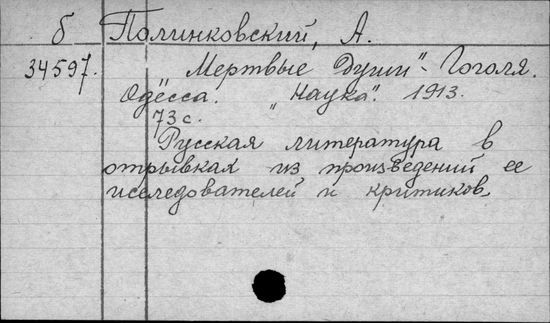 б Полинковский, А.
34597. „Мертвые Души" - Гоголя.
Одесса. „Наука". 1913.
73 с.
Русская литература в
отрывках из произведений ее
исследователей и критиков.